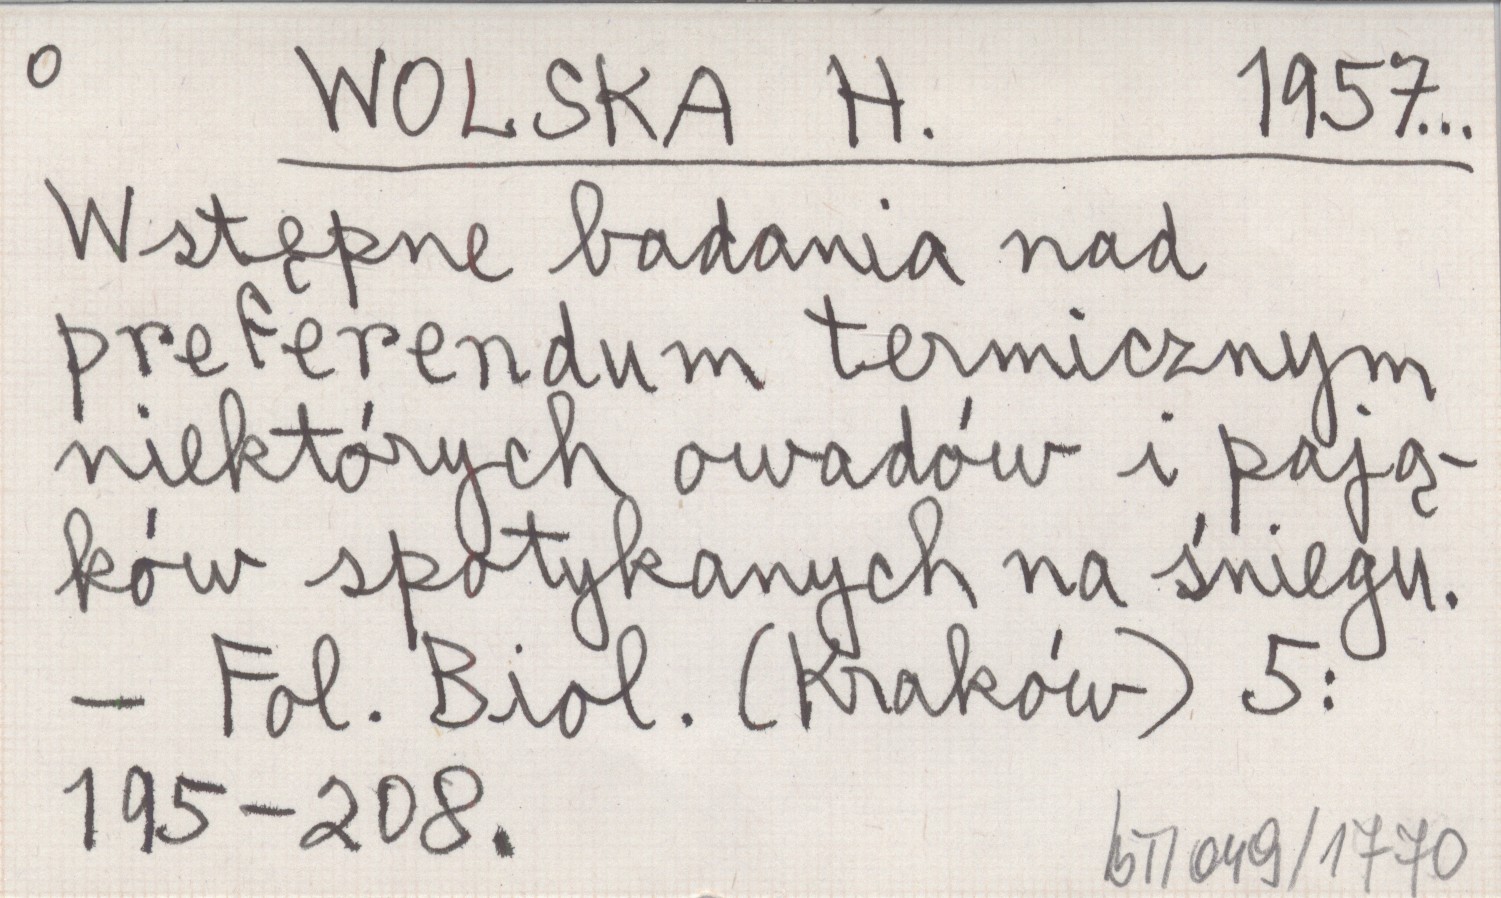 o WOLSKA H. 1957...
Wstępne badania nad
preferendum termicznym
niektórych owadów i pają-
ków spotykanych na śniegu.
– Fol. Biol. (Kraków) 5:
195–208.
049/1770